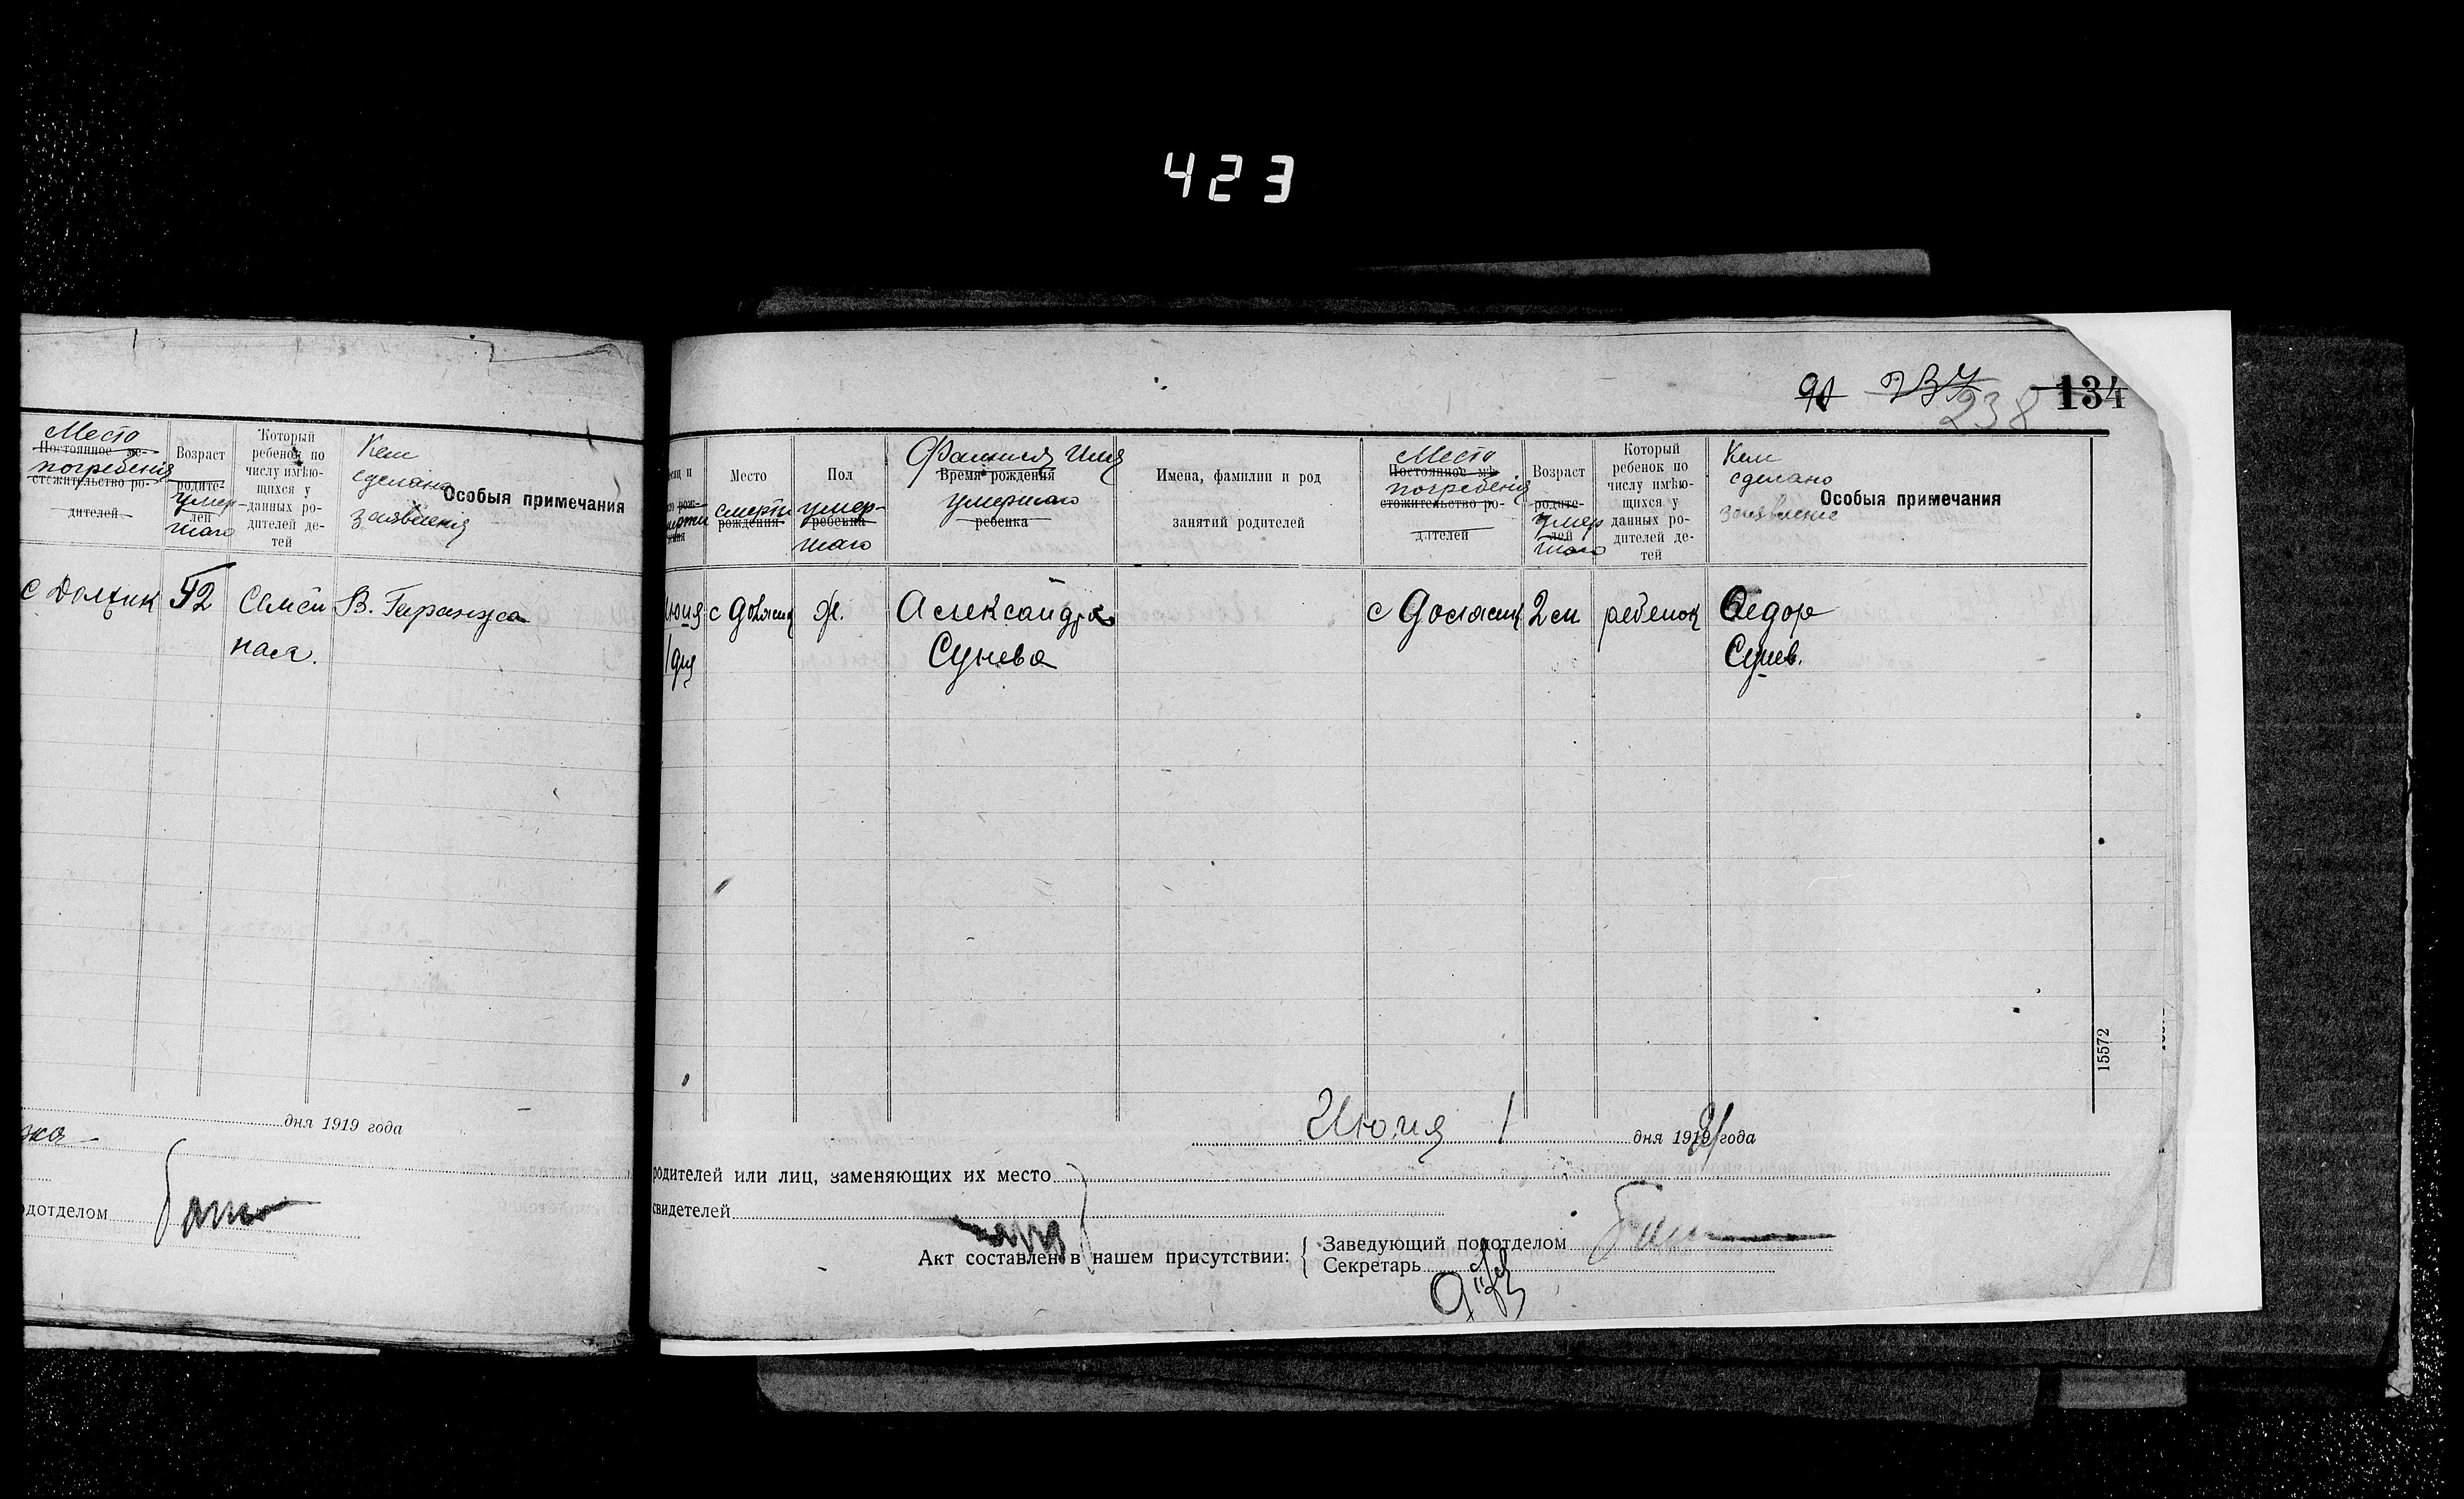 423
Место
Постоянное ме-
погребения
стожительство ро-
дителей
Возраст
родите-
умер-
лей
шаго
Который
ребенок по
числу имѣю-
щихся у
данных ро-
дителей де-
тей
Кем
сделано
заявления
Особыя примечания
с Должик
52
Семей
В. Гиранда
дня 1919 года
одотделом
91 237 238 134
Место
смерти
рождения
Пол
умер-
ребенка
шаго
Фамилия Имя
Время рождения
умершаго
ребенка
Имена, фамилии и род
занятий родителей
Место
Постоянное мѣ-
погребения
стожительство ро-
дителей
Возраст
родите-
умер
лей
шаго
Который
ребенок по
числу имѣю-
щихся у
данных ро-
дителей де-
тей
Кем
сделано
заявление
Особыя примечания
июня с Должик ж. Александра с Должик 2 м ребенок Федор
1 дня Сунева Сунев.
15572
Июня 1 дня 1921 года
родителей или лиц, заменяющих их место
свидетелей
Акт составлен в нашем присутствии:
Заведующий подотделом
Секретарь